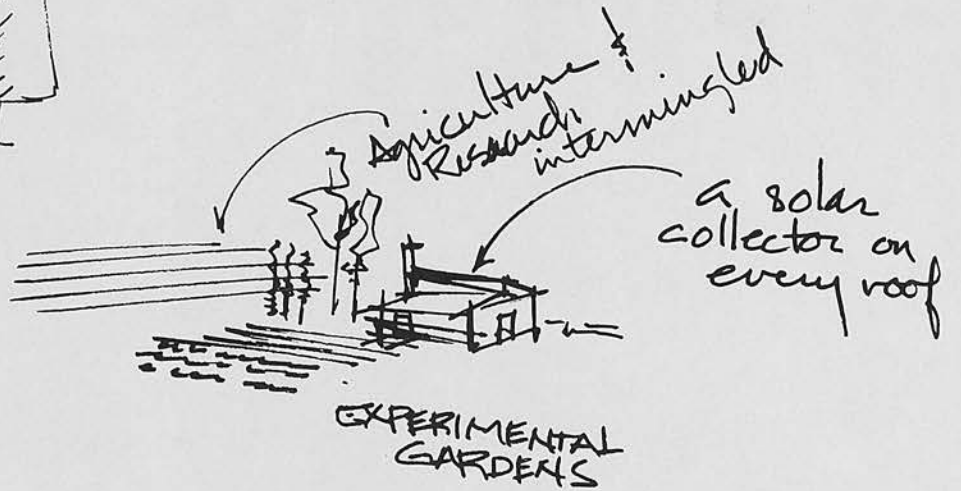 Agriculture &
Research
intermingled
a solar
collector on
every roof
EXPERIMENTAL
GARDENS